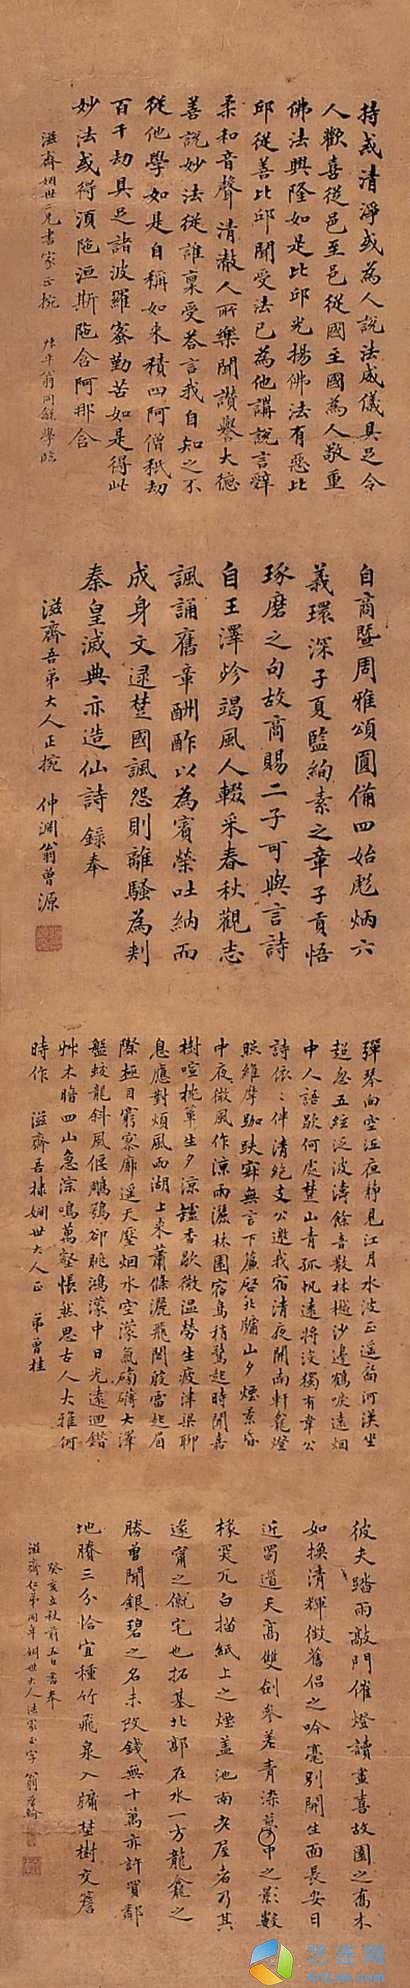 持或清淨或為人說法威儀具足令
人歡喜從邑至邑從國至國為人敬重
佛法興隆如是比邱光揚佛法有惡比
邱從善比邱聞受法已為他講說言辭
柔和音聲清澈人所樂聞讚譽大德
善說妙法從誰稟受荅言我自知之不
從他學如是自稱如來積四阿僧秖劫
百千劫具足諸波羅蜜勤苦如是得此
妙法或得須陁洹斯陁含阿那含
滋齋姻世二兄書家正捥
翁同龢學臨
自商暨周雅頌圓備四始彪炳六
義環深子夏監絢素之章子貢悟
琢磨之句故商賜二子可與言詩
自王澤殄竭風人輟采春秋觀志
諷誦舊章酬酢以為賓榮吐納而
成身文逮楚國諷怨則離騷為刺
秦皇滅典亦造仙詩 錄奉
滋齋吾弟大人正捥 仲淵翁曾源
彈琴向空江夜靜見江月水波正遥裔河漢坐
超忽五絃泛波濤餘音散林樾沙邊鶴唳遠烟
中人語歇何處楚山青孤帆遠將沒獨有韋公
詩依依伴清絕支公邀我宿清夜開南軒龕燈
照維摩跏趺寂無言下簾啓北牖山夕煙景昏
中夜微風作涼雨灑林園宿鳥稍驚起時聞嘉
樹喧桃簟生夕涼罏香歇微温勞生疲津梁聊
息應對煩風雨湖上來蕭條灑飛閣殷雷起眉
際極目窮寥廓遥天壓烟水空濛氣磅礴大澤
盤蛟龍斜風偃鵰鶚却眺鴻濛中日光遠迴錯
艸木暗四山急淙鳴萬壑悵然思古人大雅何
時作 滋齋吾棣姻世大人正 弟曾桂
彼夫踏雨敲門催燈讀畫喜故園之喬木
如換清輝徵舊侶之吟毫別開生面長安日
近蜀道天高雙劍參差青染夢中之影數
椽突兀白描紙上之煙蓋池南老屋者乃其
遂甯之僦宅也拓基北郭在水一方龍龕之
勝曾聞銀碧之名未改錢無十萬亦許買鄰
地賸三分恰宜種竹飛泉入牖埜樹交簷
癸亥立秋前五日書奉
滋齋仁弟同年姻世大人法家正字 翁斌孫
艺连网
Artlink.com